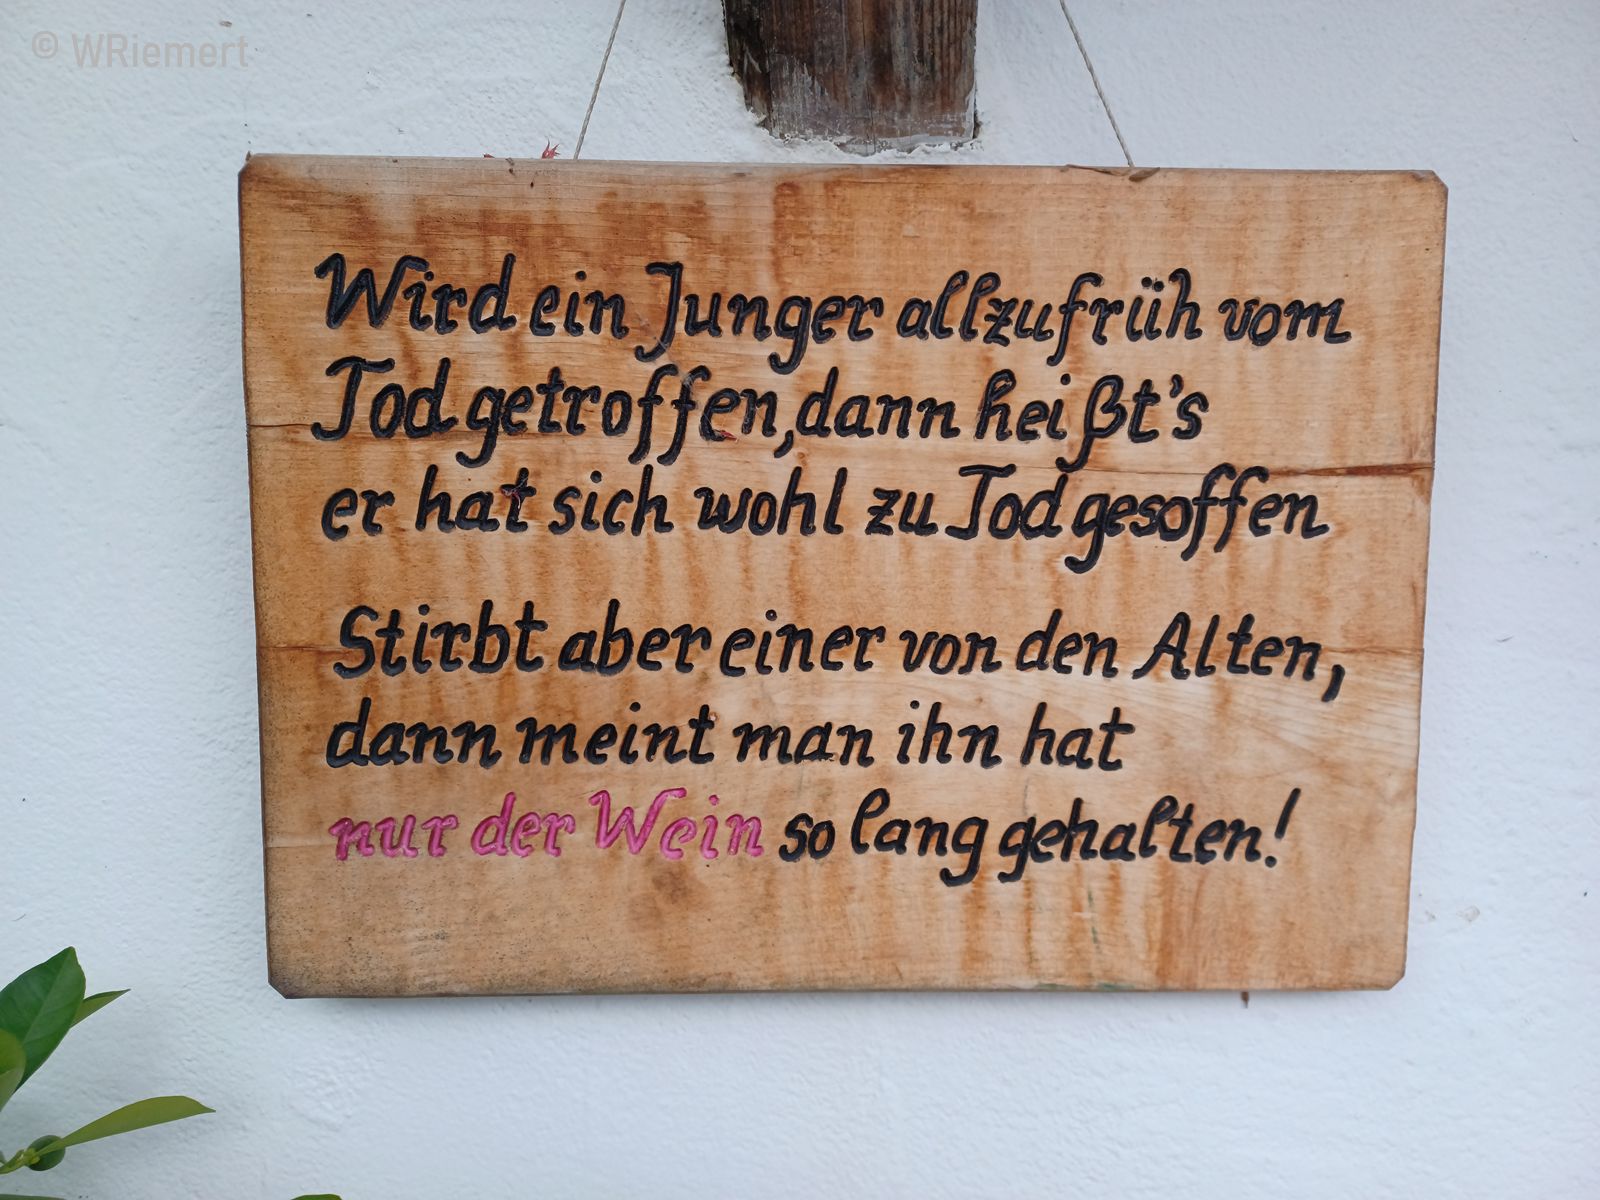 © WRiemert
Wird ein Junger allzufrüh vom
Tod getroffen, dann heißt's
er hat sich wohl zu Tod gesoffen
Stirbt aber einer von den Alten,
dann meint man ihn hat
nur der Wein so lang gehalten!